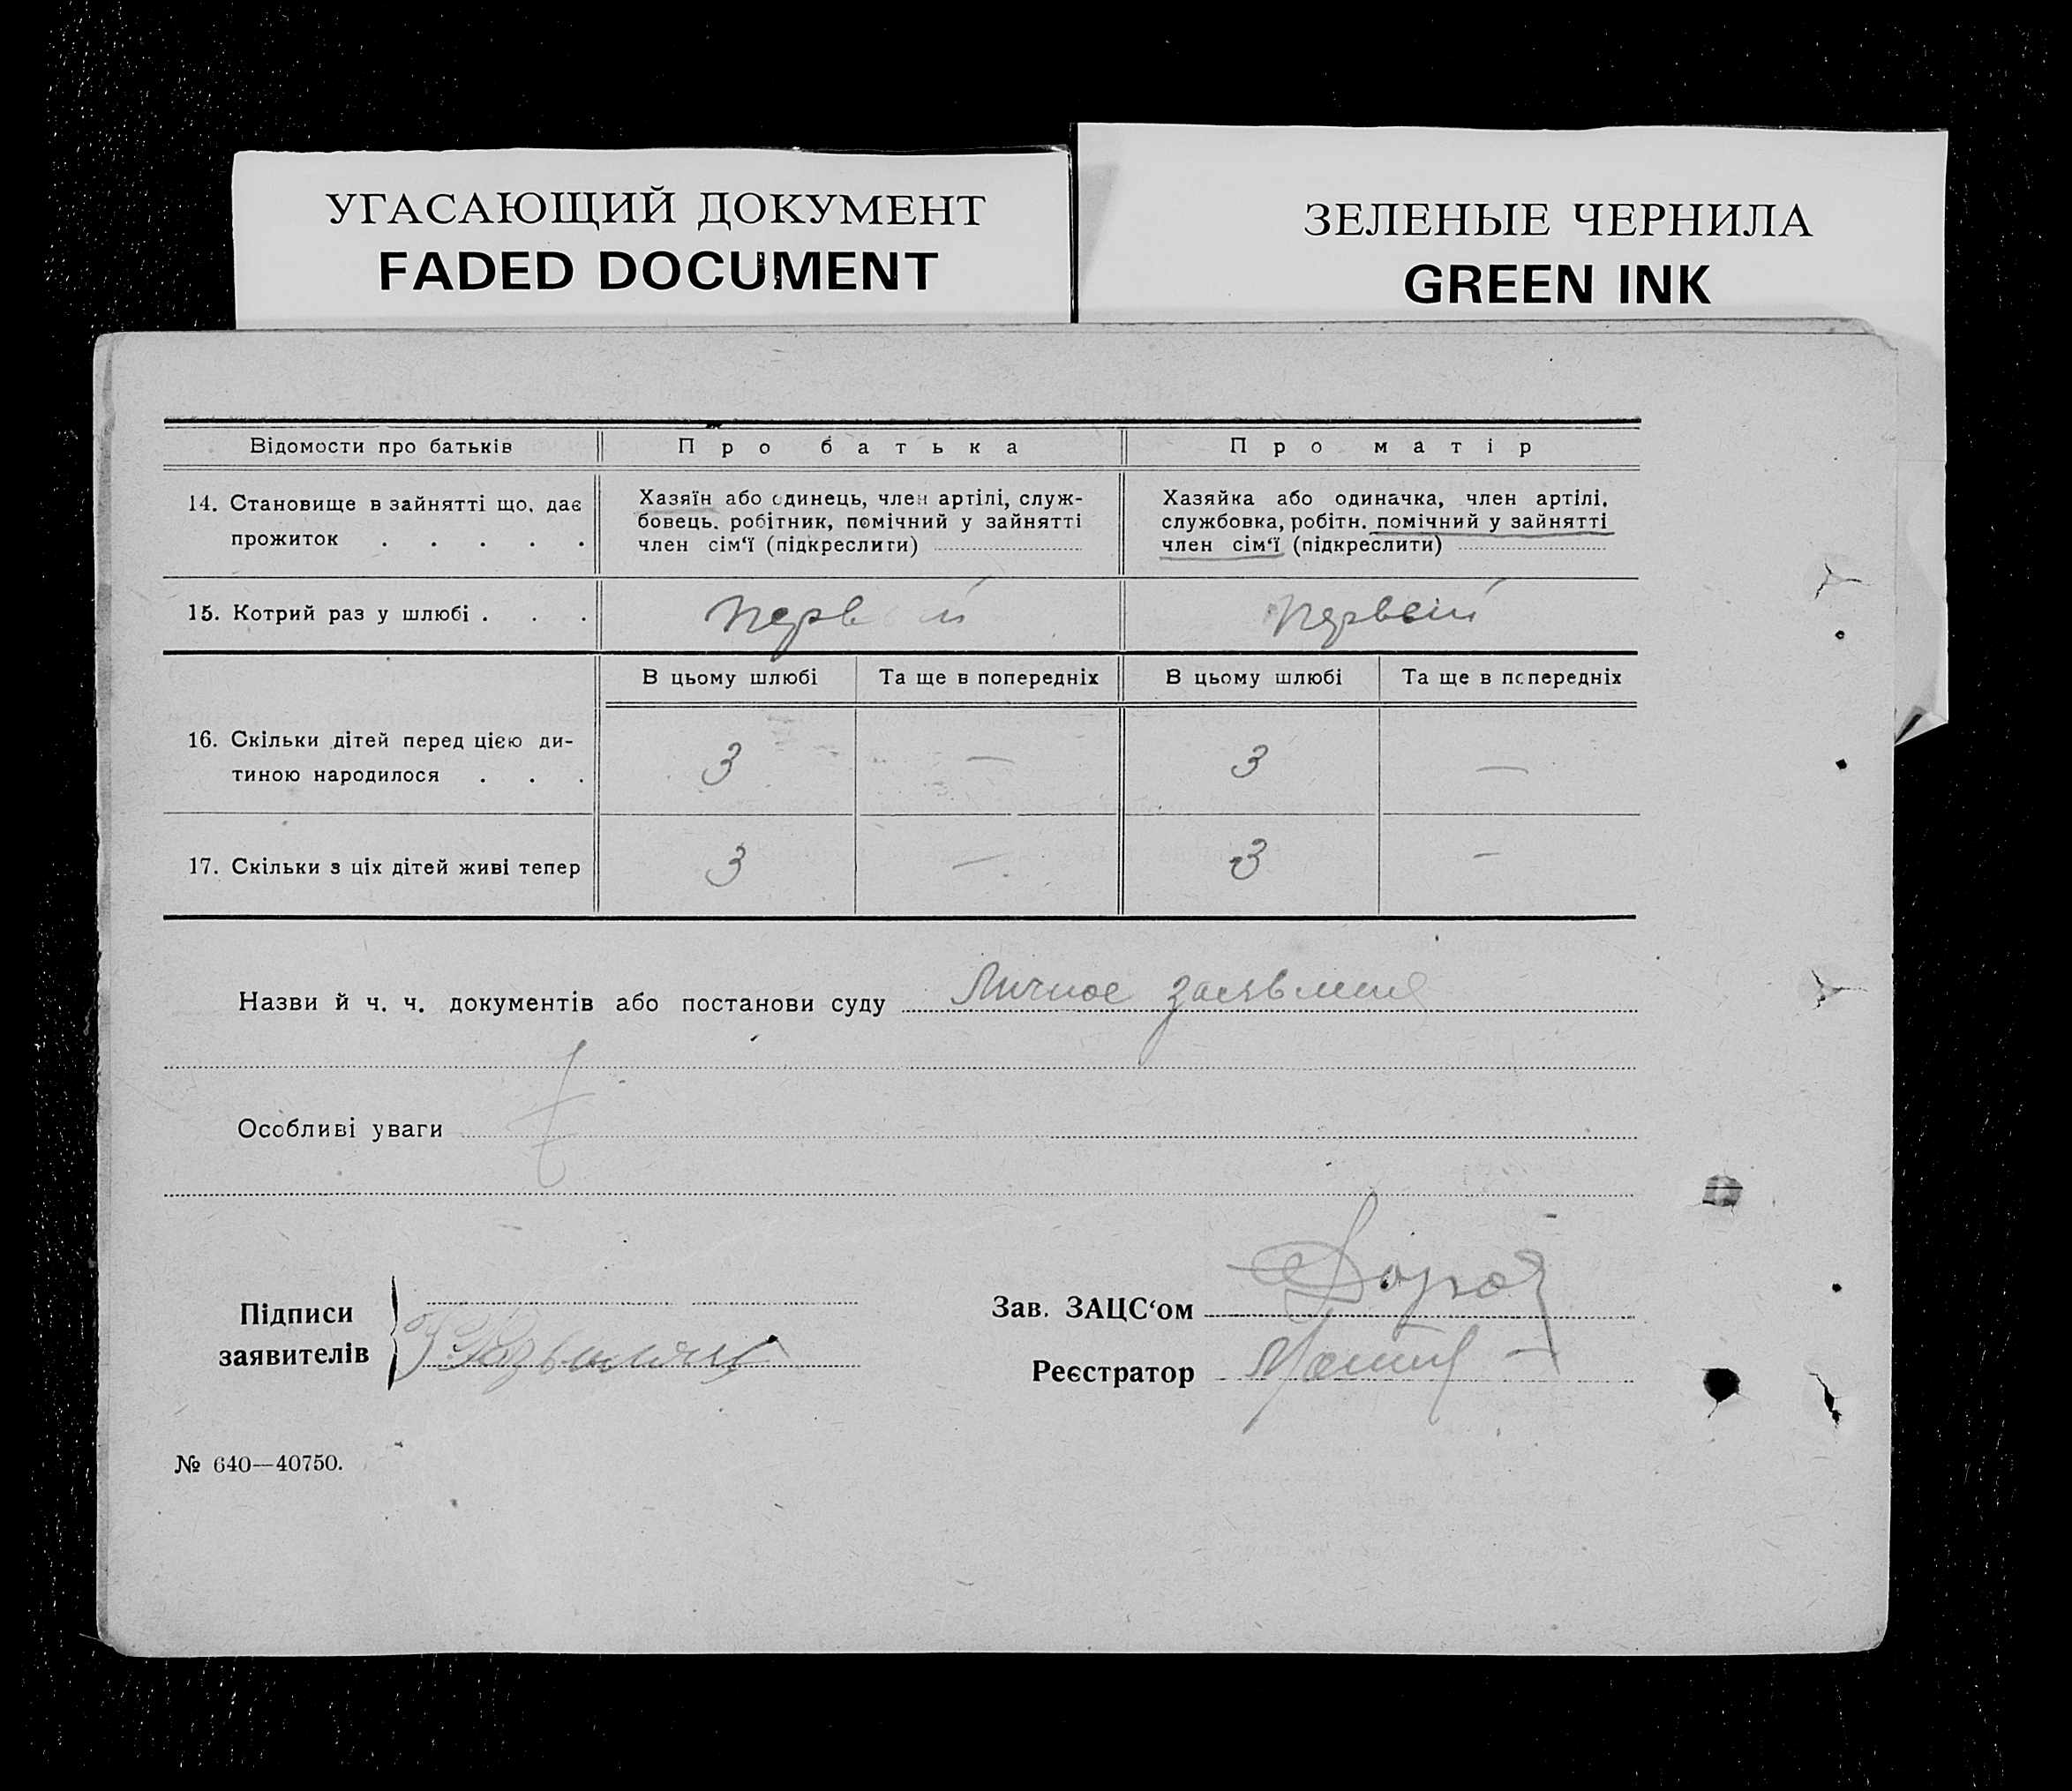 УГАСАЮЩИЙ ДОКУМЕНТ
FADED DOCUMENT
ЗЕЛЕНЫЕ ЧЕРНИЛА
GREEN INK
Відомости про батьків
Про батька
Про матір
14. Становище в зайнятті що, дає
прожиток . . . . .
Хазяїн або одинець, член артілі, служ-
бовець, робітник, помічний у зайнятті
член сім‘ї (підкреслити)
Хазяйка або одиначка, член артілі,
службовка, робітн. помічний у зайнятті
член сім‘ї (підкреслити)
15. Котрий раз у шлюбі . . .
первый
первый
В цьому шлюбі
Та ще в попередніх
В цьому шлюбі
Та ще в попередніх
16. Скільки дітей перед цією ди-
тиною народилося . . .
3
—
3
—
17. Скільки з ціх дітей живі тепер
3
—
3
—
Назви й ч. ч. документів або постанови суду Личное заявление
Особливі уваги
Підписи
заявителів
Зав. ЗАЦС‘ом
Реєстратор
№ 640—40750.